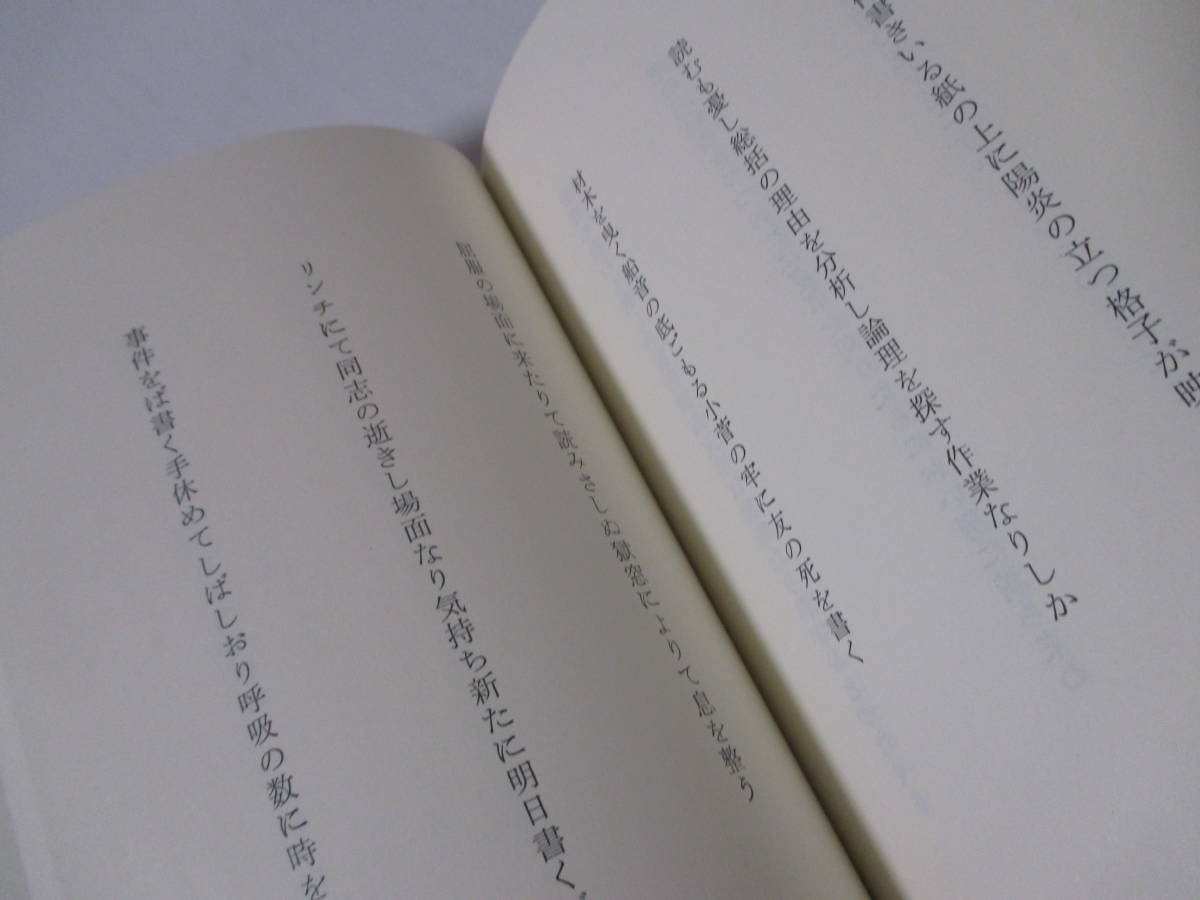 書きいる紙の上に陽炎の立つ格子が映
読むも憂し総括の理由を分析し論理を探す作業なりしか
材木を曳く船音の底ごもる小菅の牢に友の死を書く
の場面に来たりて読みさしぬ獄窓によりて息を整う
リンチにて同志の逝きし場面なり気持ち新たに明日書く
事件をば書く手休めてしばしおり呼吸の数に時を